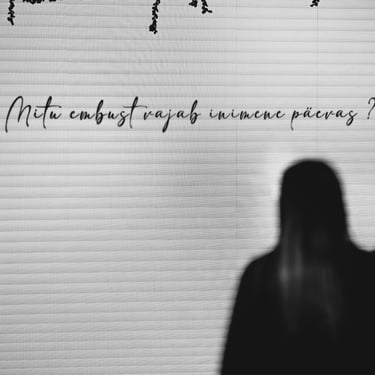 Mitu embust vajab inimene päevas?